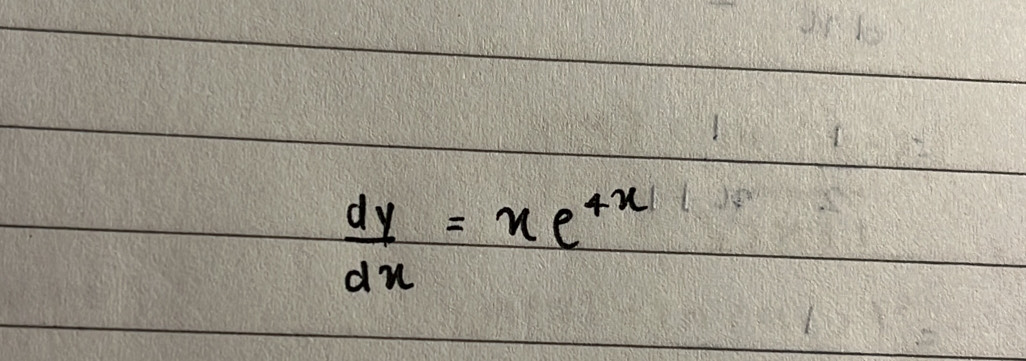 dy/dx = x e^{4x}